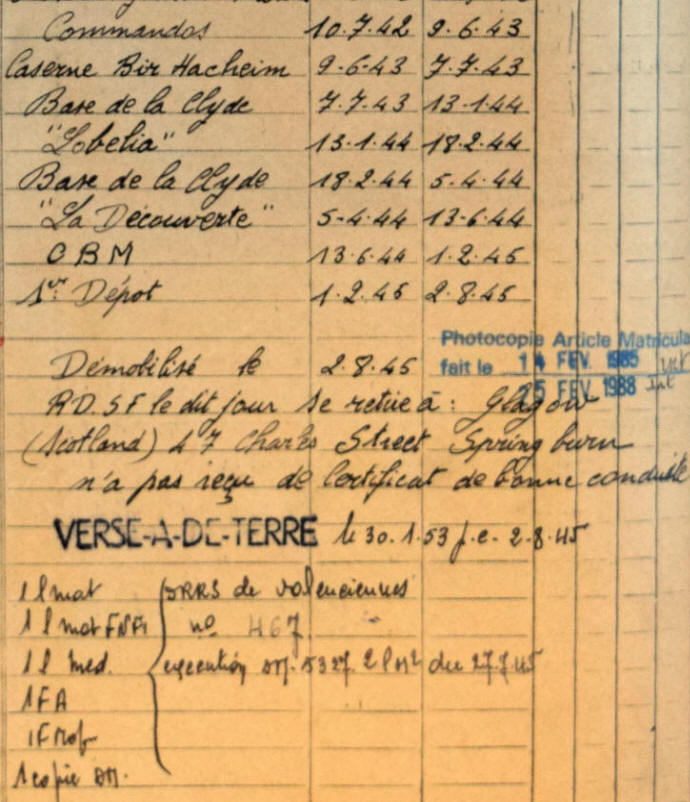 Commandos 10.7.42 9.6.43
Caserne Bir Hacheim 9-6-43 7.7.43
Base de la Clyde 7.7.43 13-1-44
"Lobelia" 13.1.44 18.2.44
Base de la Clyde 18.2.44 5.4.44
"La Découverte" 5-4-44 13-6-44
C B M 13.6.44 1.2.45
1er Dépot 1.2.45 2.8.45
Photocopie Article Matricula
Démobilisé le 2.8.45 fait le 14 FEV. 1985
25 FEV. 1988
R.D.S.F le dit jour se retire à : Glagow
(Scotland) 47 Charles Street Spring burn
n'a pas reçu de Certificat de bonne conduite
VERSE-A-DE-TERRE le 30.1.53 f.e. 2.8.45
1 l mat DRRS de Valenciennes
1 l mat FNFL no 467
1 l med. exécution DM. 5327. du 27.7.45
1 FA
1 F Mob
1 copie DM.